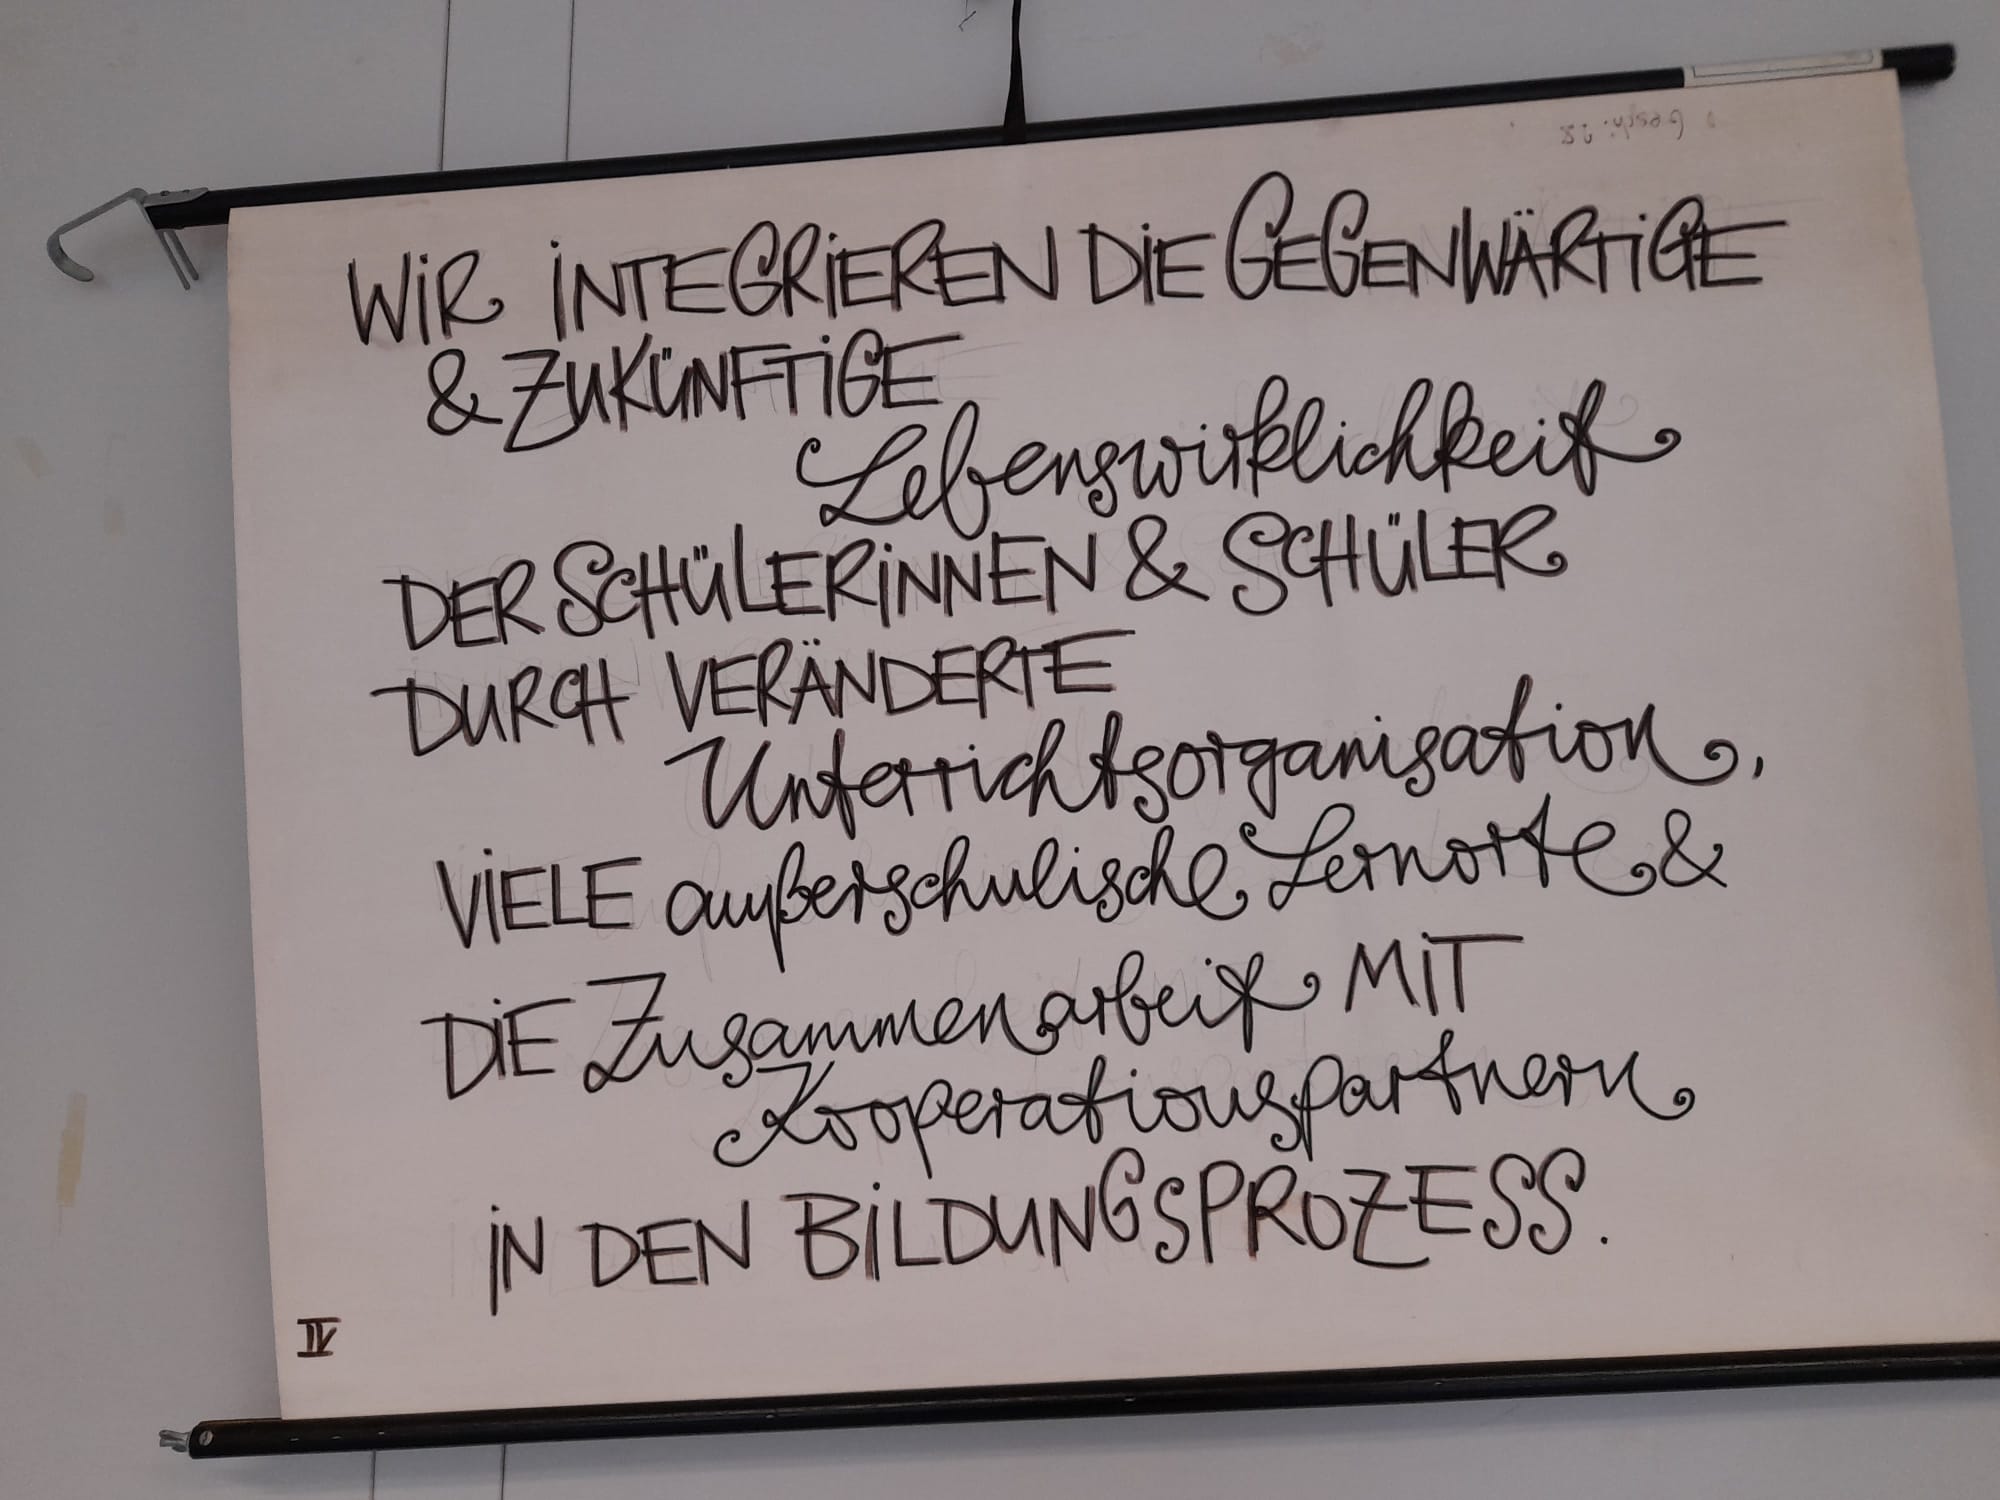 WIR INTEGRIEREN DIE GEGENWÄRTIGE
& ZUKÜNFTIGE
Lebenswirklichkeit
DER SCHÜLERINNEN & SCHÜLER
DURCH VERÄNDERTE
Unterrichtsorganisation,
VIELE außerschulische Lernorte &
DIE Zusammenarbeit MIT
Kooperationspartnern
IN DEN BILDUNGSPROZESS.
IV